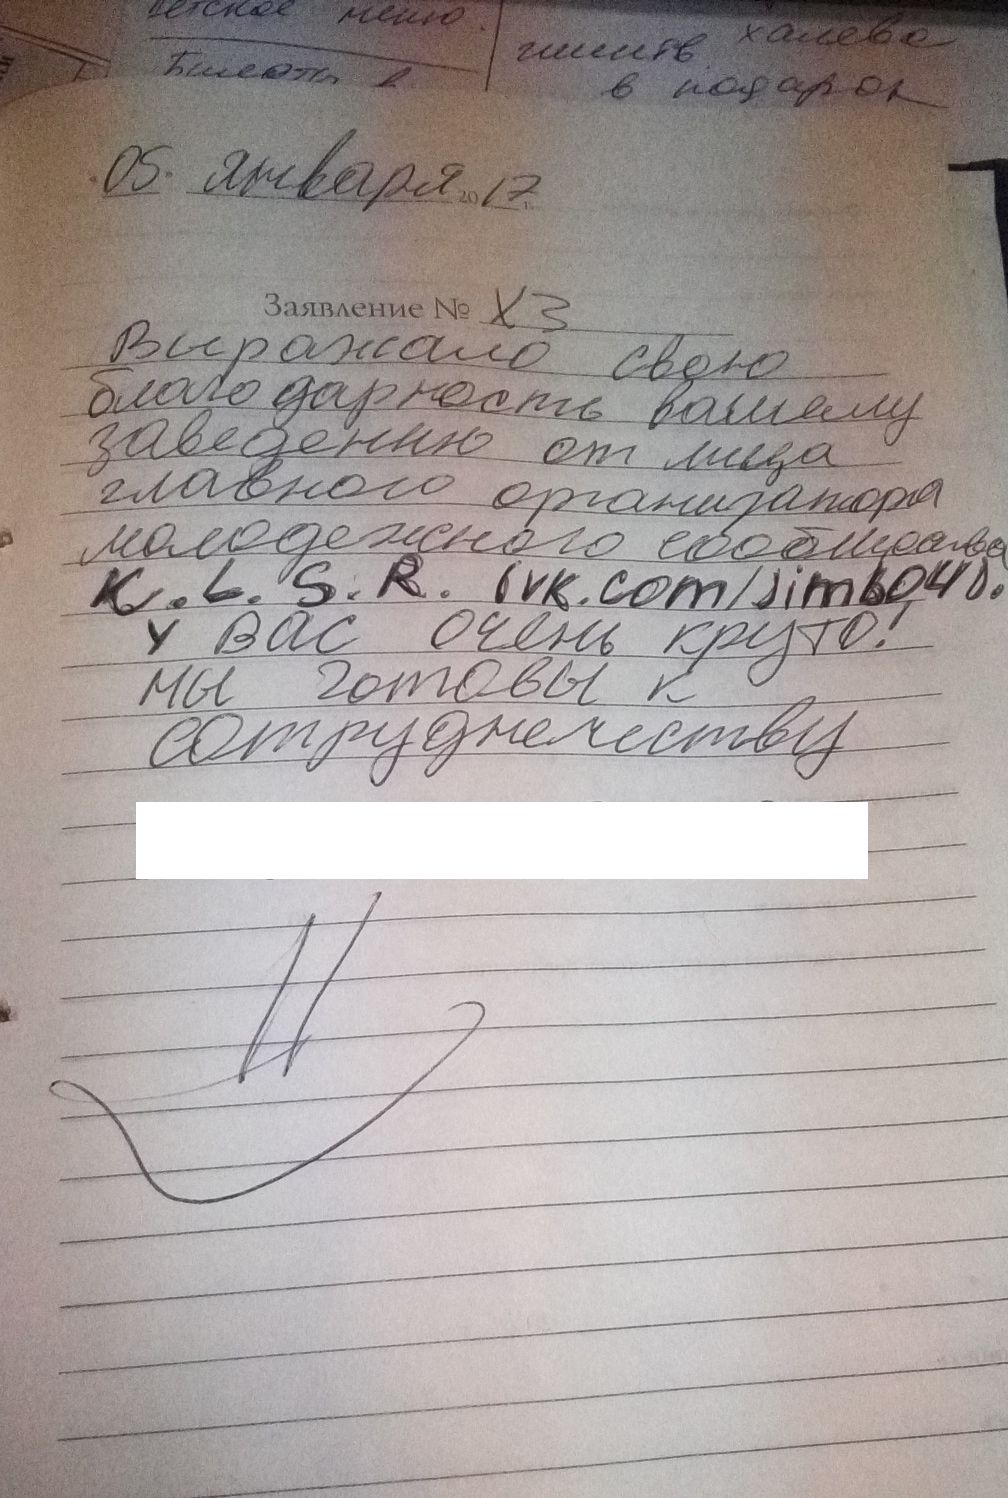 детское меню.
Билеты в
халева
в подарок
05. января 2017 г.
Заявление № ХЗ
Выражаю свою
благодарность вашему
заведению от лица
главного организатора
молодежного сообщества
K.L.S.R. (vk.com/simb04).
У ВАС очень круто!
мы готовы к
сотруднечеству